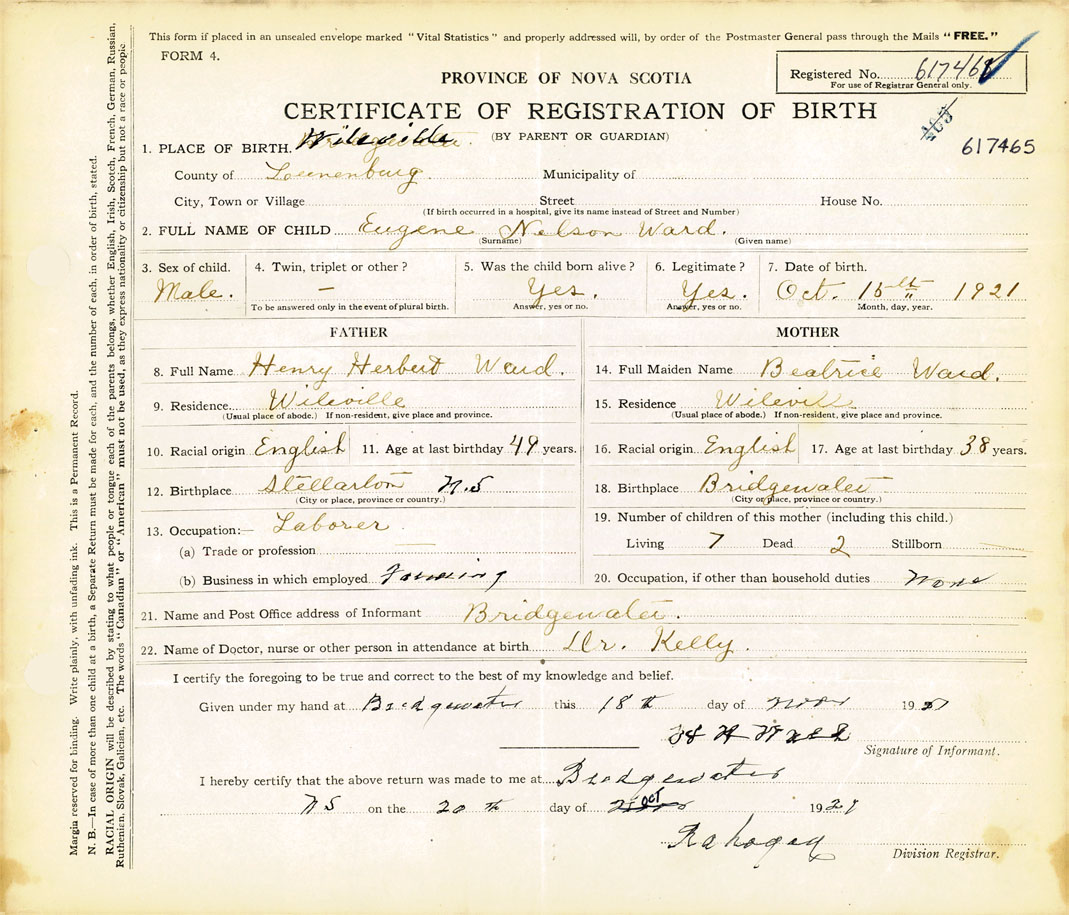 This form if placed in an unsealed envelope marked "Vital Statistics" and properly addressed will, by order of the Postmaster General pass through the Mails "FREE."
FORM 4.
Registered No. 617468
For use of Registrar General only.
PROVINCE OF NOVA SCOTIA
CERTIFICATE OF REGISTRATION OF BIRTH
(BY PARENT OR GUARDIAN)
617465
1. PLACE OF BIRTH. Wileville
County of Lunenburg. Municipality of
City, Town or Village Street House No.
(If birth occurred in a hospital, give its name instead of Street and Number)
2. FULL NAME OF CHILD Eugene Nelson Ward.
(Surname) (Given name)
3. Sex of child. 4. Twin, triplet or other? 5. Was the child born alive? 6. Legitimate? 7. Date of birth.
Male. – Yes. Yes. Oct. 15th 1921
To be answered only in the event of plural birth. Answer, yes or no. Answer, yes or no. Month, day, year.
FATHER
8. Full Name Henry Herbert Ward.
9. Residence Wileville
(Usual place of abode.) If non-resident, give place and province.
10. Racial origin English 11. Age at last birthday 49 years.
12. Birthplace Stellarton N.S
(City or place, province or country.)
13. Occupation:— Laborer
(a) Trade or profession
(b) Business in which employed
MOTHER
14. Full Maiden Name Beatrice Ward.
15. Residence Wilevill
(Usual place of abode.) If non-resident, give place and province.
16. Racial origin English 17. Age at last birthday 38 years.
18. Birthplace Bridgewater
(City or place, province or country.)
19. Number of children of this mother (including this child.)
Living 7 Dead 2 Stillborn
20. Occupation, if other than household duties None
21. Name and Post Office address of Informant Bridgewater.
22. Name of Doctor, nurse or other person in attendance at birth Dr. Kelly.
I certify the foregoing to be true and correct to the best of my knowledge and belief.
Given under my hand at Bridgewater this 18th day of Nov 1921
H Ward
Signature of Informant.
I hereby certify that the above return was made to me at Bridgewater
NS on the 20th day of Oct 1921
Division Registrar.
Margin reserved for binding. Write plainly, with unfading ink. This is a Permanent Record.
N. B.—In case of more than one child at a birth, a Separate Return must be made for each, and the number of each, in order of birth, stated.
RACIAL ORIGIN will be described by stating to what people or tongue each of the parents belongs, whether English, Irish, Scotch, French, German, Russian,
Ruthenian, Slovak, Galician, etc. The words "Canadian" or "American" must not be used, as they express nationality or citizenship but not a race or people